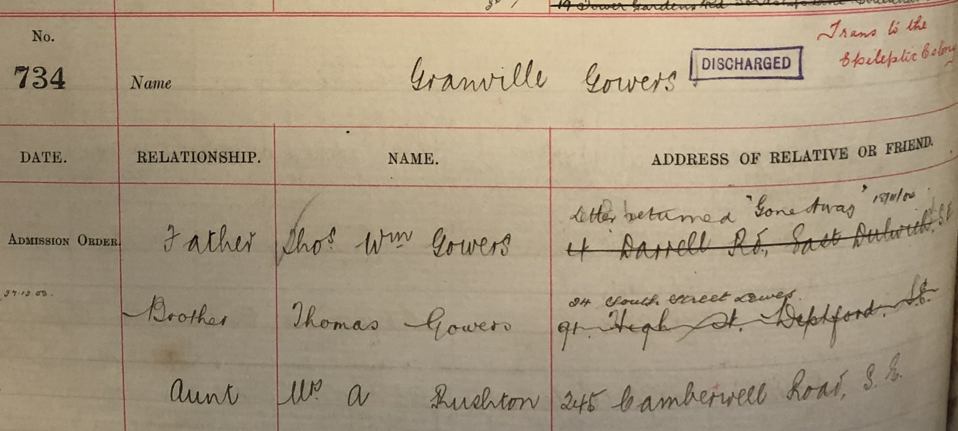 19 Tower Gardens Rd
No.
734
Name
Granville Gowers
DISCHARGED
Trans to the
Epileptic Colony
DATE. RELATIONSHIP. NAME. ADDRESS OF RELATIVE OR FRIEND.
Letter returned "Gone Away"
ADMISSION ORDER. Father Thos Wm Gowers 4 Darrell Rd, East Dulwich, S.E.
24 South Street Lewes
Brother Thomas Gowers 91 High St. Deptford. S.E.
Aunt Mrs A Rushton 245 Camberwell Road, S.E.